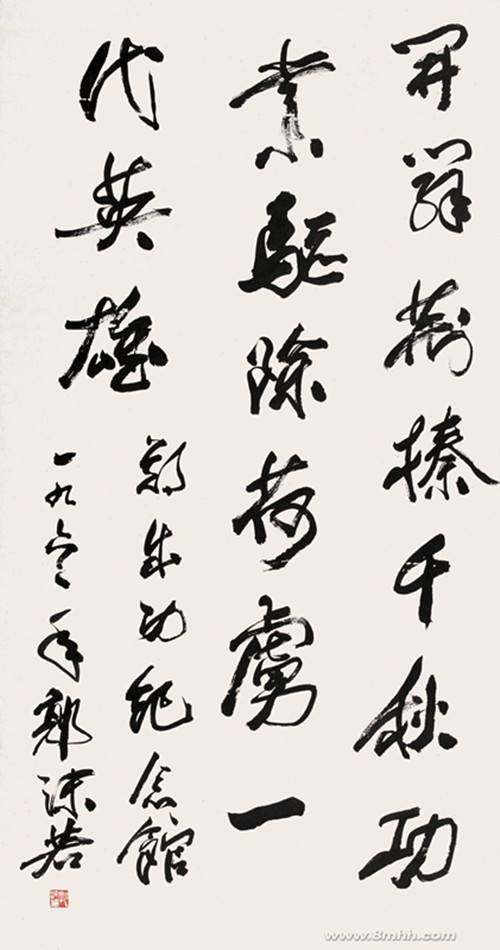 開辟荆榛千秋功
業驅除荷虜一
代英雄
鄭成功紀念館
一九六二年郭沫若
www.8mhh.com